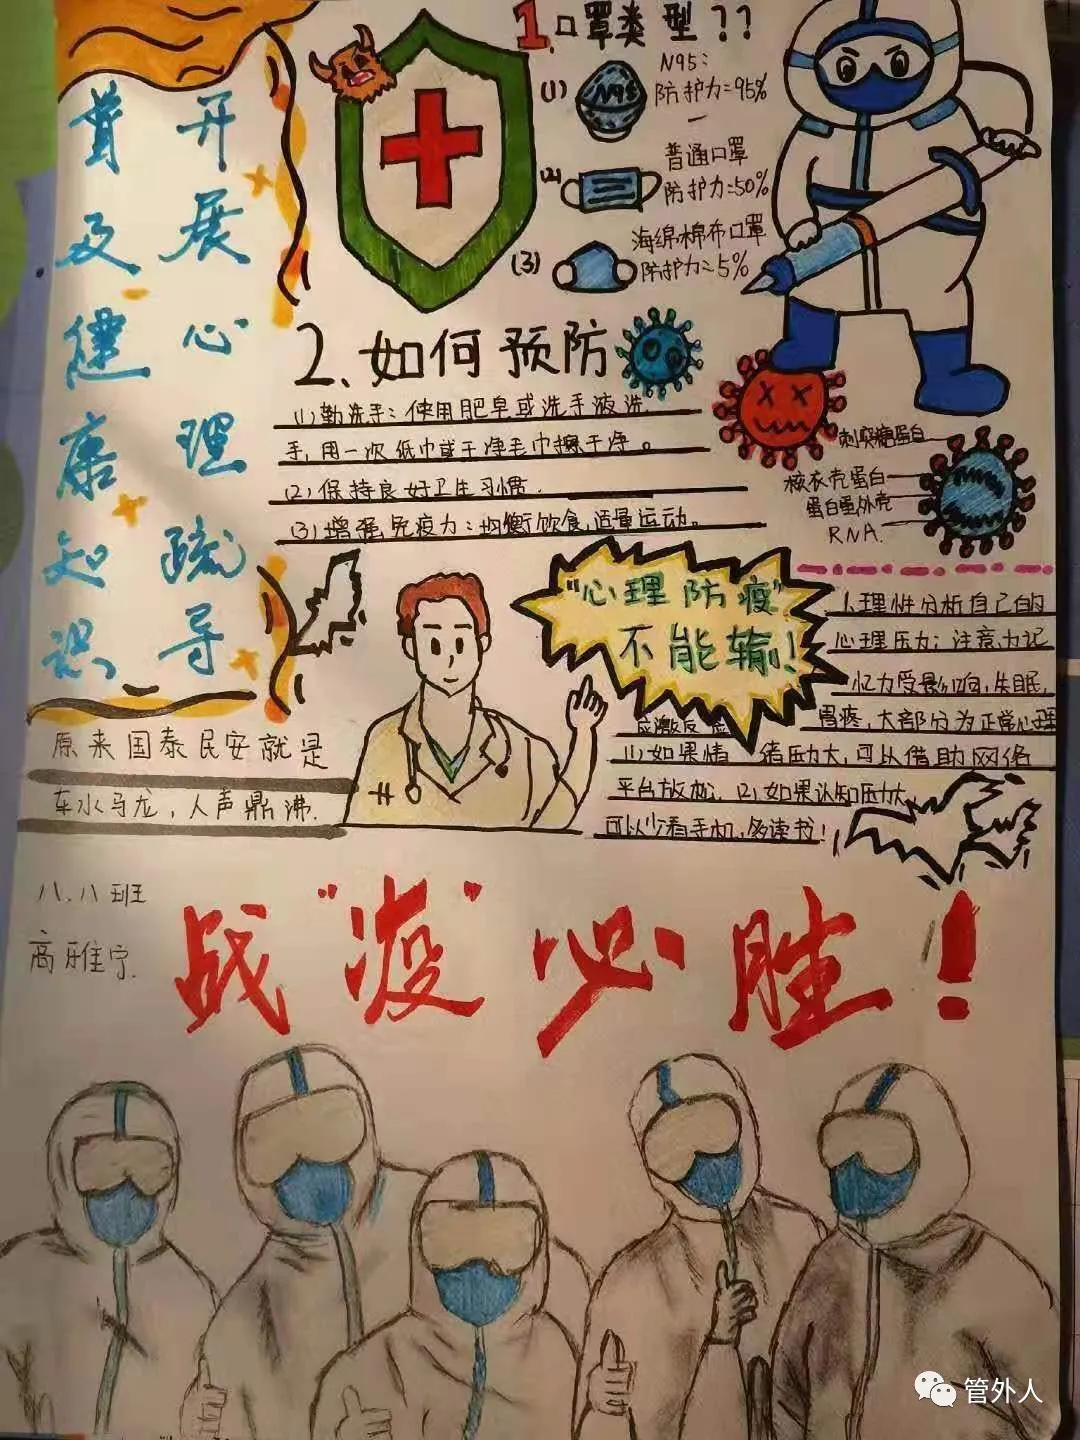 开展心理疏导
普及健康知识
1.口罩类型??
(1)
N95
N95:
防护力=95%
(2)
普通口罩
防护力=50%
(3)
海绵、棉布口罩
防护力=5%
2.如何预防
(1)勤洗手:使用肥皂或洗手液洗
手,用一次纸巾或干净毛巾擦干净。
(2)保持良好卫生习惯.
(3)增强免疫力:均衡饮食,适量运动。
刺突糖蛋白
核衣壳蛋白
RNA.
"心理防疫"
不能输!
1.理性分析自己的
心理压力:注意力记
忆力受影响,失眠,
胃疼,大部分为正常心理
应激反应
(1)如果情绪压力大,可以借助网络
平台放松,(2)如果认知压力大
可以少看手机,多读书!
原来国泰民安就是
车水马龙,人声鼎沸.
八.八班
高雅宁.
战"疫"必胜!
管外人